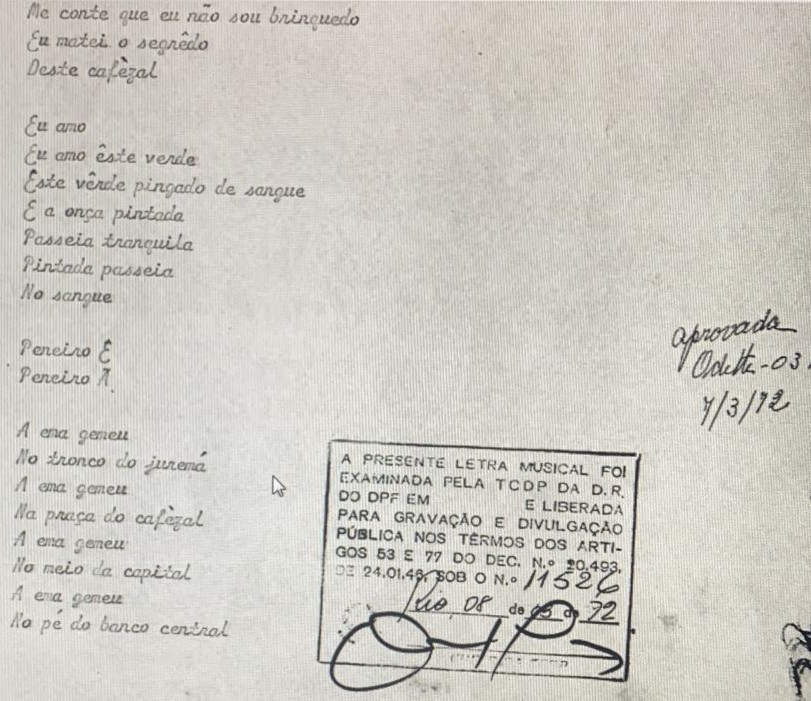 Me conte que eu não sou brinquedo
Eu matei o segrêdo
Deste cafèzal
Eu amo
Eu amo êste verde
Êste vêrde pingado de sangue
E a onça pintada
Passeia tranquila
Pintada passeia
No sangue
Pereiro É
Pereiro A.
A ema gemeu
No tronco do juremá
A ema gemeu
Na praça do cafèzal
A ema gemeu
No meio da capital
A ema gemeu
No pé do banco central
aprovada
Odette-03
7/3/72
A PRESENTE LETRA MUSICAL FOI
EXAMINADA PELA TCDP DA D.R.
DO DPF EM E LIBERADA
PARA GRAVAÇÃO E DIVULGAÇÃO
PÚBLICA NOS TÊRMOS DOS ARTI-
GOS 53 E 77 DO DEC. N.º 20.493,
DE 24.01.46, SOB O N.º 11526
Rio, 08 de 03 de 72